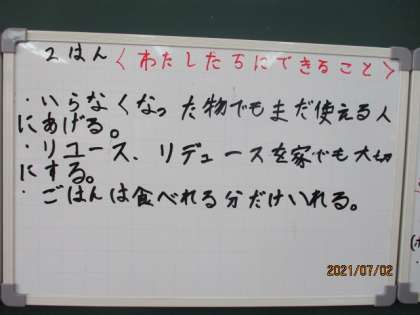 2はん 〈わたしたちにできること〉
・いらなくなった物でもまだ使える人
にあげる。
・リユース、リデュースを家でも大切
にする。
・ごはんは食べれる分だけいれる。
2021/07/02